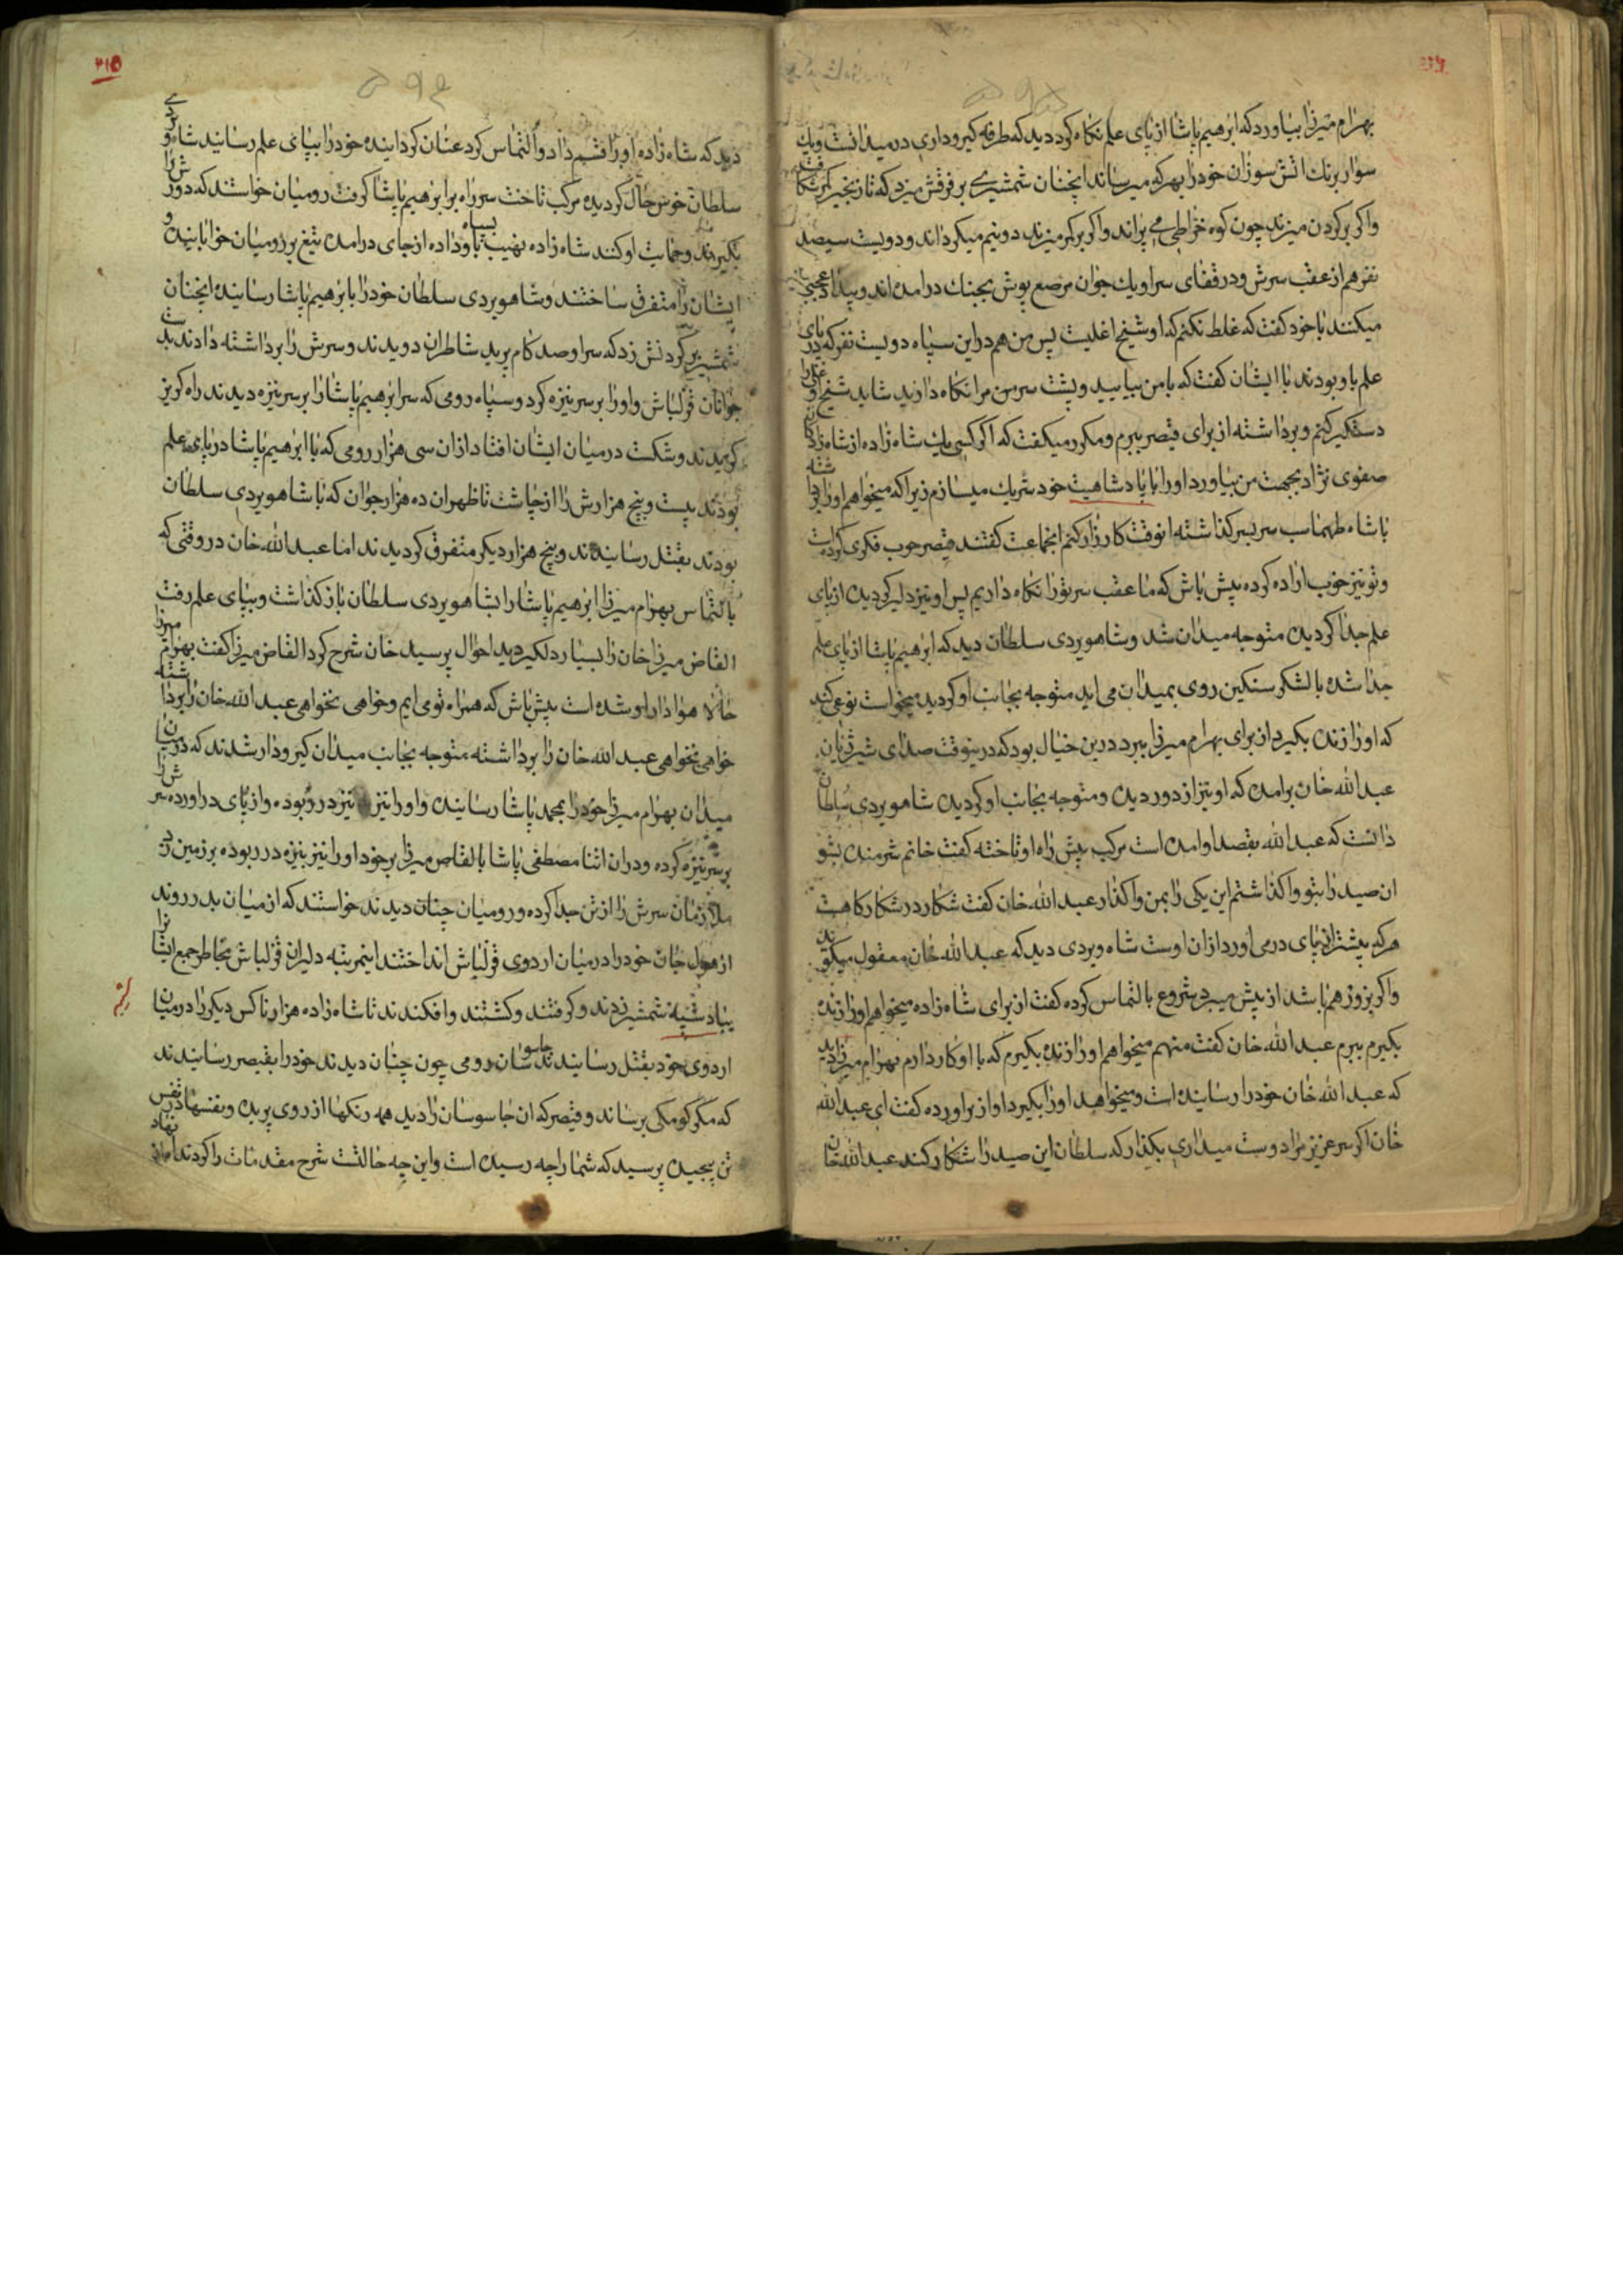 بهرام میرزا بیاورد که ابرهیم پاشا از پای علم نکاه کرد دید که طرفه کیروداری در میدانست ویك
سوار برنك اتش سوزان خودرا بهر که میرساند انچنان شمشیری بر فرقش میزد که تا زنجیر کمر شکافت
واکر بر کردن میزند چون کوه خراطی می پراند واکر بر کمر میزند دونیم میکرداند ودویست سیصد
نفر هم از عقب سرش ودر قفای سر او یك جوان مرصع پوش بجنك درامده اند وبیداد عجبی
میکنند با خود کفت که غلط نکنم که او شیخ اغلیست پس من هم در این سپاه دویست نفر که در پای
علم با و بودند با ایشان کفت که با من بیایید وپشت سر من مرا نکاه دارید شاید شیخ اوغلی را
دستکیر کنم وبرداشته از برای قیصر ببرم ومکرر میکفت که اکر کسی یك شاه زاده از شاه زادکان
صفوی نژاد بجهت من بیاورد اورا با پادشاهیت خود شریك میسازم زیرا که میخواهم اورا برداشته
با شاه طهماسب سر بسر کذاشته انوقت کارزار کنم انجماعت کفتند قیصر خوب فکری کرده است
وتو نیز خوب اراده کرده پیش باش که ما عقب سر تورا نکاه داریم پس او نیز دلیر کردیده از پای
علم جدا کردیده متوجه میدان شد وشاهویردی سلطان دید که ابرهیم پاشا از پای علم
جدا شده با لشکر سنکین روی بمیدان می اید متوجه بجانب او کردید میخواست نوعی کند
که اورا زنده بکیرد از برای بهرام میرزا ببرد درین خیال بود که درینوقت صدای شیر ژیان
عبد الله خان برامد که او نیز از دور دیده ومتوجه بجانب او کردیده شاهویردی سلطان
دانست که عبد الله بقصد او امده است مرکب پیش راه او تاخته کفت خانم شرمنده بتو
ان صید را بتو واکذاشتم این یکی را بمن واکذار عبد الله خان کفت شکار در شکارکاهست
هر که پیشتر از پای درمی اورد از ان اوست شاه ویردی دید که عبد الله خان معقول میکوید
واکر بزور هم باشد از پیش میبرد شروع با لتماس کرده کفت از برای شاه زاده میخواهم اورا زنده
بکیرم ببرم عبد الله خان کفت منهم میخواهم اورا زنده بکیرم که با او کار دارم بهرام میرزا دید
که عبد الله خان خودرا رسانیده است ومیخواهد اورا بکیرد اواز براورده کفت ای عبد الله
خان اکر سر عزیز مرا دوست میداری بکذار که سلطان این صید را شکار کند عبد الله خان
۲۱۵
دید که شاه زاده اورا قسم داد والتماس کرد عنان کردانیده خودرا بپای علم رسانید شاه ویردی
سلطان خوش حال کردیده مرکب تاخت سر راه برابرهیم پاشا کرفت رومیان خواستند که دورش را
بکیرند وحمایت او کنند شاه زاده نهیب بسپاه داده از جای درامده تیغ بر رومیان خوابانیده و
ایشان را متفرق ساختند وشاهویردی سلطان خودرا بابرهیم پاشا رسانیده انچنان
شمشیر بر کردنش زد که سر او صد کام پرید شاطران دویدند وسرش را برداشته دادند بدست
جوانان قزلباش واورا بر سر نیزه کرد وسپاه رومی که سر ابرهیم پاشا را بر سر نیزه دیدند راه کریز
کزیدند وشکست در میان ایشان افتاد از ان سی هزار رومی که با ابرهیم پاشا در پای علم
بودند بیست وپنج هزارش را از چاشت تا ظهر ان ده هزار جوان که با شاهویردی سلطان
بودند بقتل رسانیدند وپنج هزار دیکر متفرق کردیدند اما عبد الله خان در وقتی که
بالتماس بهرام میرزا ابرهیم پاشا را بشاهویردی سلطان باز کذاشت وبپای علم رفت
القاص میرزا خان را بسیار دلکیر دید احوال پرسید خان شرح کرد القاص میرزا کفت بهرام میرزا
حالا هوادار او شده است پیش باش که همراه تو می ایم وخواهی نخواهی عبد الله خان را برداشته
خواهی نخواهی عبد الله خان را برداشته متوجه بجانب میدان کیرودار شدند که در میان
میدان بهرام میرزا خودرا بمحمد پاشا رسانیده واورا نیز نیزه در ربوده واز پای دراورده سرش را
بر سر نیزه کرده ودران اثنا مصطفی پاشا بالقاص میرزا برخورد اورا نیز بنیزه در ربوده بر زمین زد
ملازمان سرش را از تن جدا کرده ورومیان چنان دیدند خواستند که از میان بدر روند
از هول جان خودرا در میان اردوی قزلباش انداختند اینمرتبه دلیران قزلباش بخاطر جمع ایشانرا
بباد شیبه شمشیر زدند وکرفتند وکشتند وافکندند تا شاه زاده هزار ناکس دیکر را در میان
اردوی خود بقتل رسانیدند جاسوسان رومی چون چنان دیدند خودرا بقیصر رسانیدند
که مکر کومکی برساند وقیصر که ان جاسوسان را دید همه رنکها از روی پریده ونفسها در قفس
تن پیچیده پرسید که شما را چه رسیده است واین چه حالتست شرح مقدمات را کردند